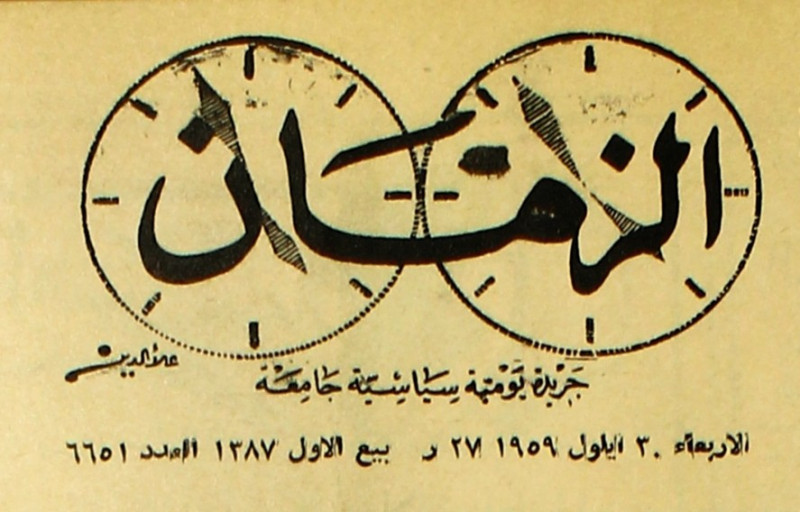 الزمان
علاء الدين
جَرْيدة يَوْمية سِيَاسِيّة جَامِعَة
الاربعاء ٣٠ ايلول ١٩٥٩ ٢٧ ر بيع الاول ١٣٨٧ العدد ٦٦٥١